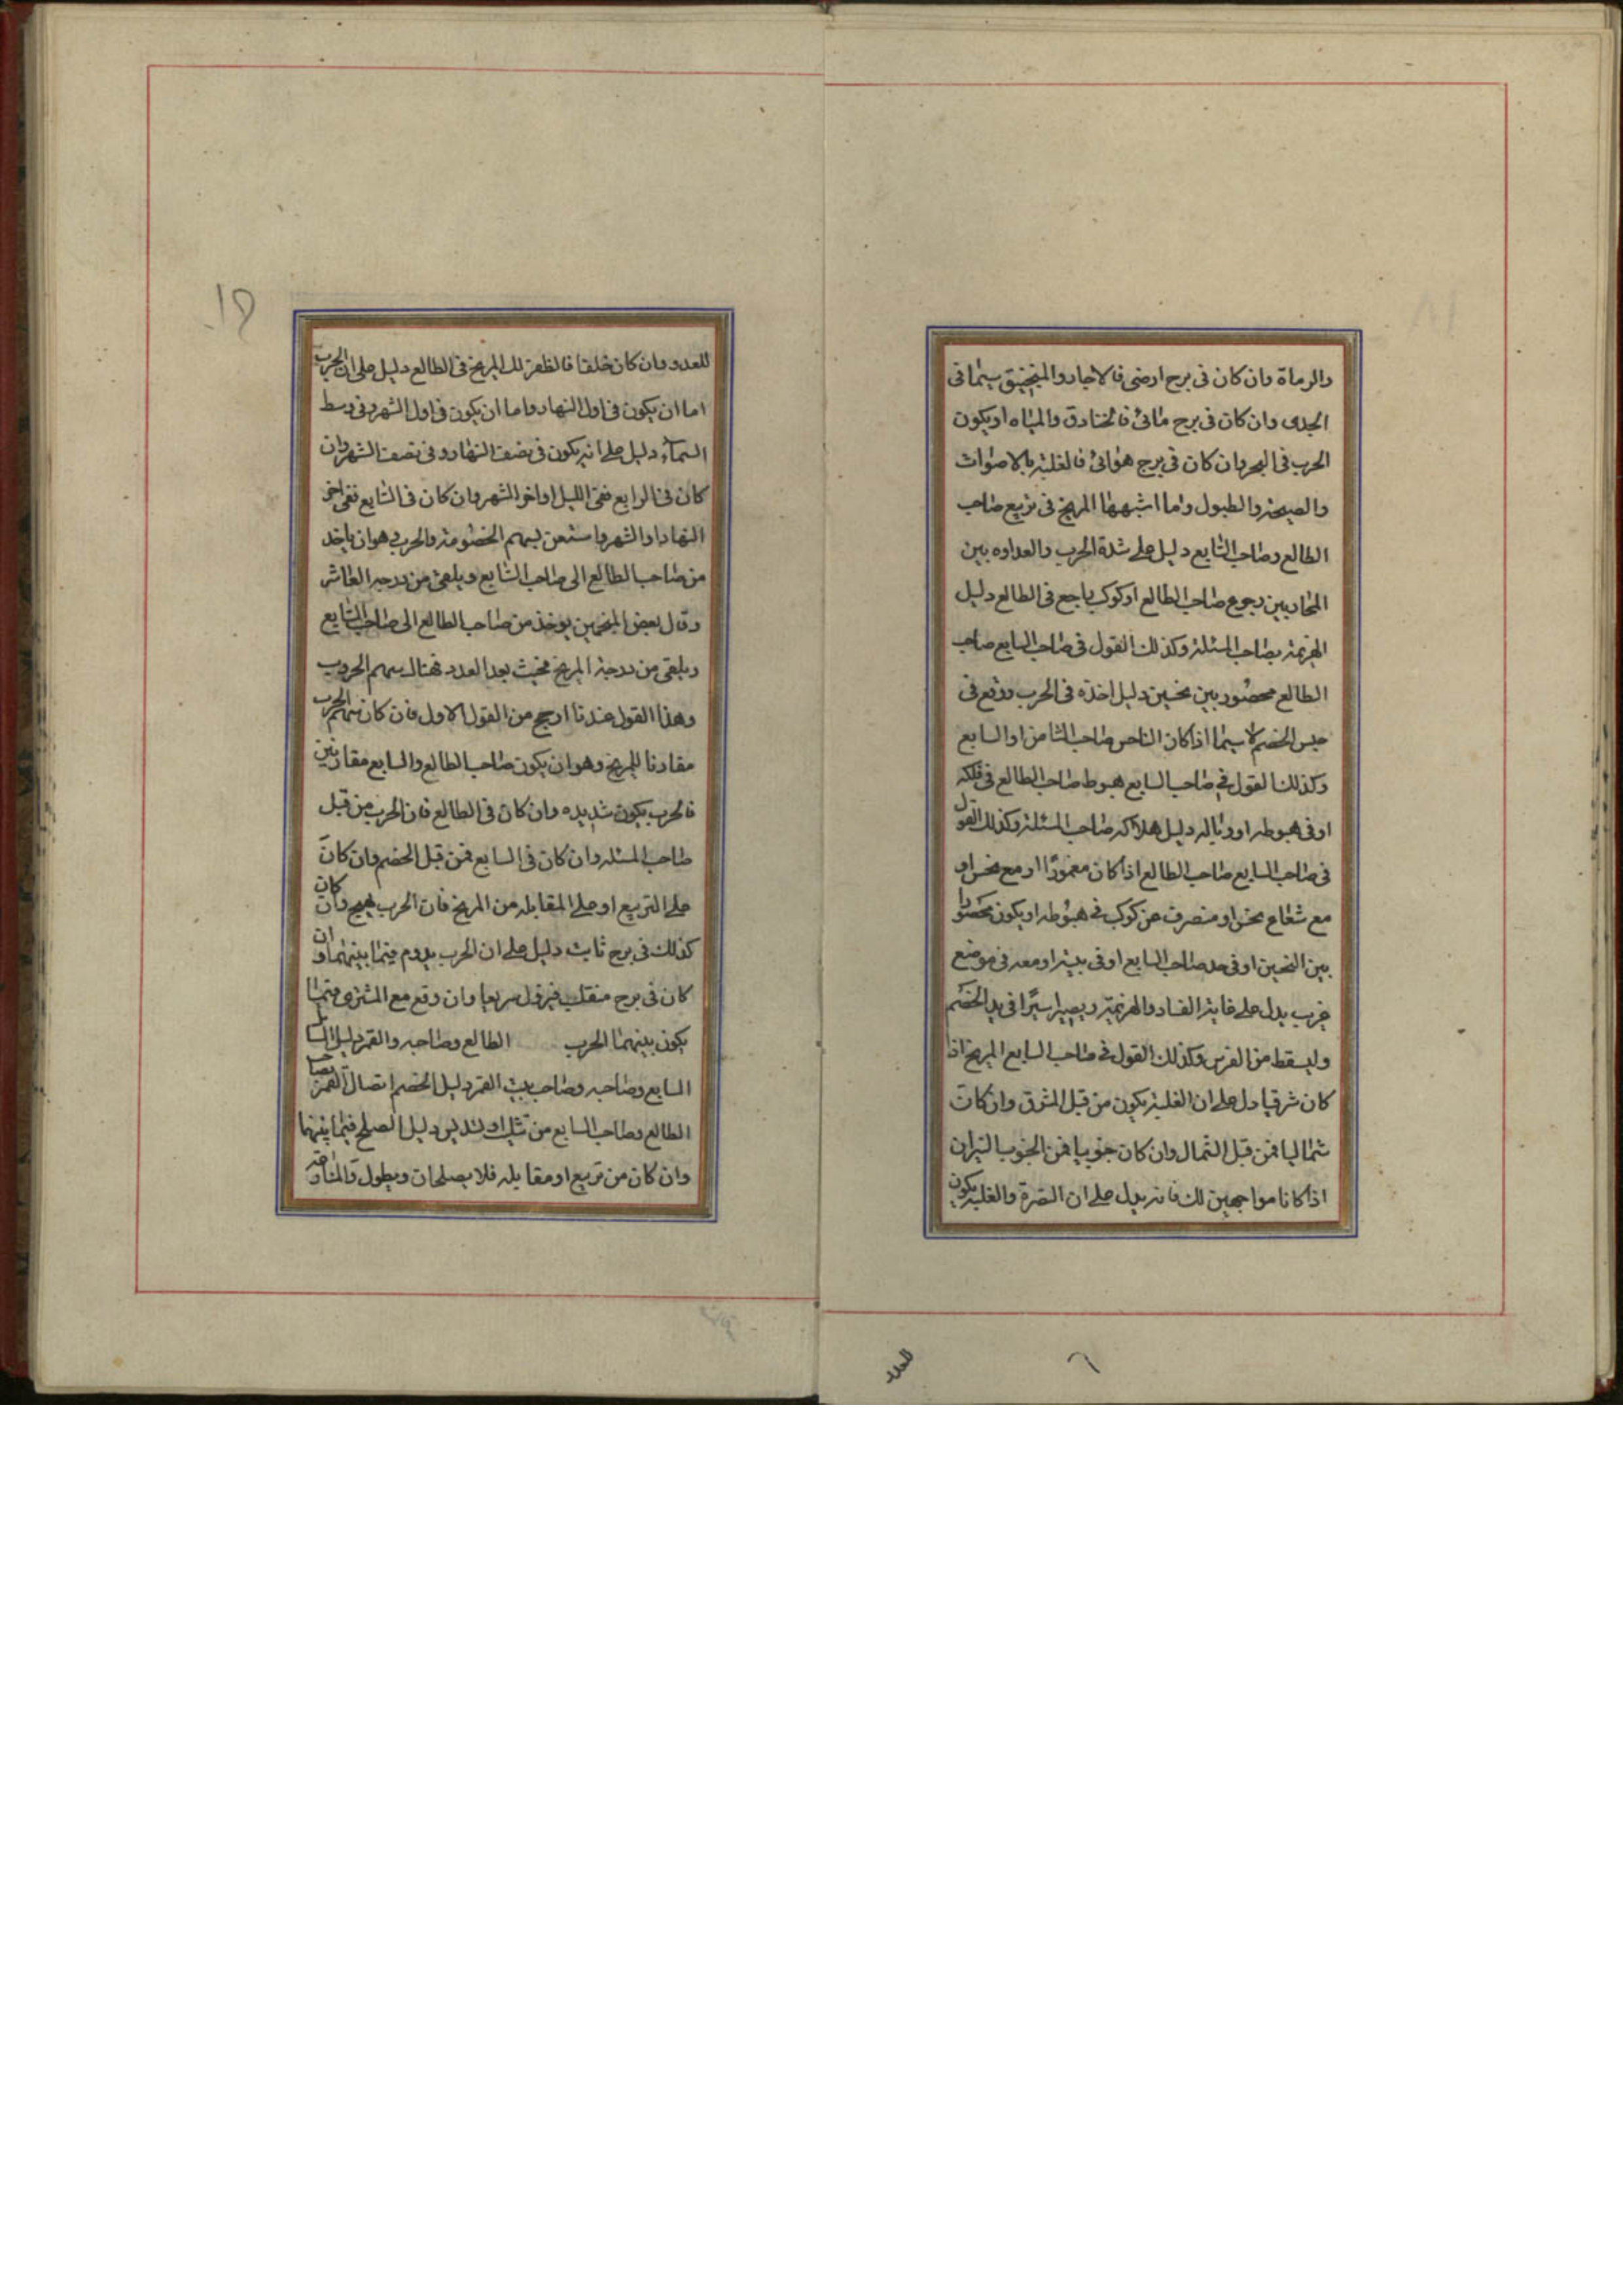 والرماة وان كان فى برج ارضى فالاحجار والمنجنيق سيما فى
الجدى وان كان فى برج مائى فالخنادق والمياه او يكون
الحرب فى البحر وان كان فى برج هوائى فالغلبة بالاصوات
والصيحة والطبول وما اشبهها المريخ فى تربيع صاحب
الطالع وصاحب السابع دليل على شدة الحرب والعداوه بين
المحاربين رجوع صاحب الطالع او كوكب راجع فى الطالع دليل
الهزيمة بصاحب المسئلة وكذلك القول فى صاحب السابع صاحب
الطالع محصور بين نحسين دليل اخذه فى الحرب ووقع فى
حبس الخصم لا سيما اذا كان الناحس صاحب الثامن او السابع
وكذلك القول فى صاحب السابع هبوط صاحب الطالع فى فلكه
او فى هبوطه او وباله دليل هلاكه صاحب المسئلة وكذلك القول
فى صاحب السابع صاحب الطالع اذا كان مغمورًا او مع نحس او
مع شعاع نحس او منصرف عن كوكب فى هبوطه او يكون محصورا
بين النحسين او فى حد صاحب السابع او فى بيته او معه فى موضع
غريب يدل على غاية الفساد والهزيمة ويصير اسيرًا فى يد الخصم
وليسقط من الفرس وكذلك القول فى صاحب السابع المريخ اذا
كان شرقيا دل على ان الغلبة يكون من قبل المشرق وان كان
شماليا فمن قبل الشمال وان كان جنوبيا فمن الجنوب النيران
اذا كانا مواجهين لك فانه يدل على ان النصرة والغلبة يكون
للعدد
٦
١٥
للعدو وان كان خلفا فالظفر لك المريخ فى الطالع دليل على ان الحرب
اما ان يكون فى اول النهار واما ان يكون فى اول الشهر وفى وسط
السماء دليل على انه يكون فى نصف النهار وفى نصف الشهر وان
كان فى الرابع ففى الليل او اخر الشهر وان كان فى السابع ففى اخر
النهار او الشهر واستعن بسهم الخصومة والحرب وهو ان ياخذ
من صاحب الطالع الى صاحب السابع ويلقى من درجة العاشر
وقال بعض المنجمين يوخذ من صاحب الطالع الى صاحب السابع
ويلقى من درجة المريخ فحيث بعد العدد فهناك سهم الحروب
وهذا القول عندنا ارجح من القول الاول فان كان سهم الحرب
مقارنا للمريخ وهو ان يكون صاحب الطالع والسابع مقارنين
فالحرب يكون شديده وان كان فى الطالع فان الحرب من قبل
صاحب المسئله وان كان فى السابع فمن قبل الخصم وان كان
على التربيع او على المقابله من المريخ فان الحرب يهيج وان كان
كذلك فى برج ثابت دليل على ان الحرب يدوم فيما بينهما وان
كان فى برج منقلب فيزول سريعا وان وقع مع المشترى فيما
يكون بينهما الحرب الطالع وصاحبه والقمر دليل السائل
السابع وصاحبه وصاحب بيت القمر دليل الخصم اتصال القمر بصاحب
الطالع وصاحب السابع من تثليث او تسديس دليل الصلح فيما بينهما
وان كان من تربيع او مقابله فلا يصلحان ويطول